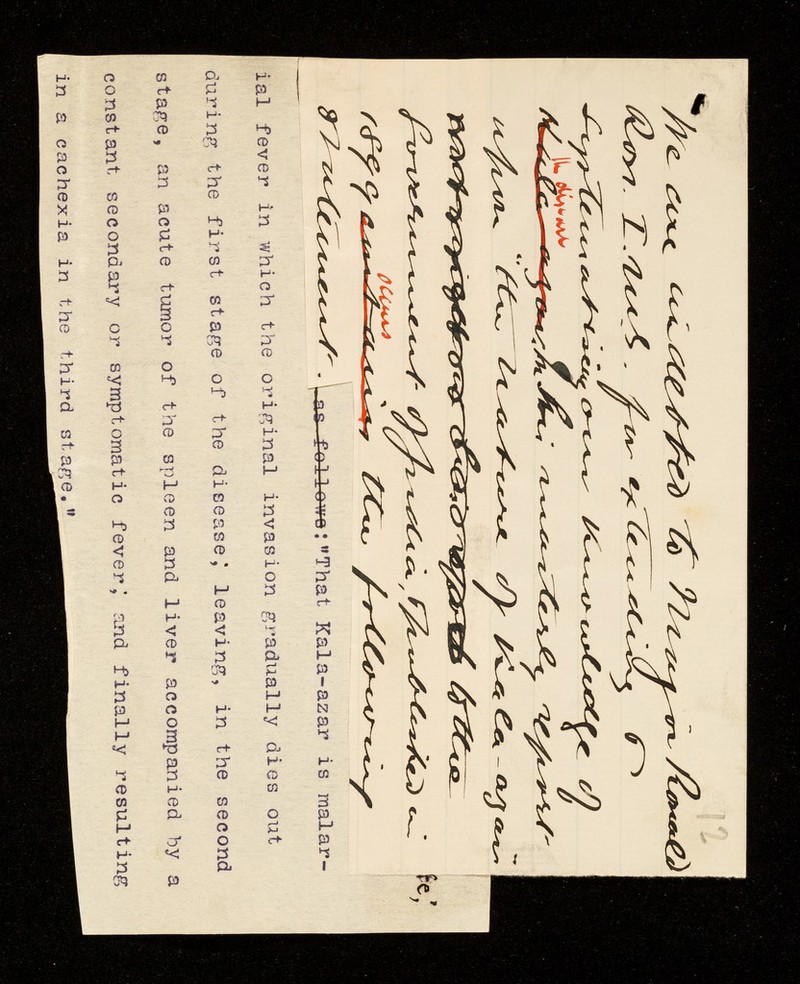 12
We are indebted to Major Ronald
Ross. I.M.S. for extending &
systematising our knowledge of
the disease
Kala-azar. In his masterly report
upon "the nature of Kala-azar"
to the
Government of India, & published in
&c;
occurs
1899 the following
statement.
as follows:"That Kala-azar is malar-
ial fever in which the original invasion gradually dies out
during the first stage of the disease; leaving, in the second
stage, an acute tumor of the spleen and liver accompanied by a
constant secondary or symptomatic fever; and finally resulting
in a cachexia in the third stage."